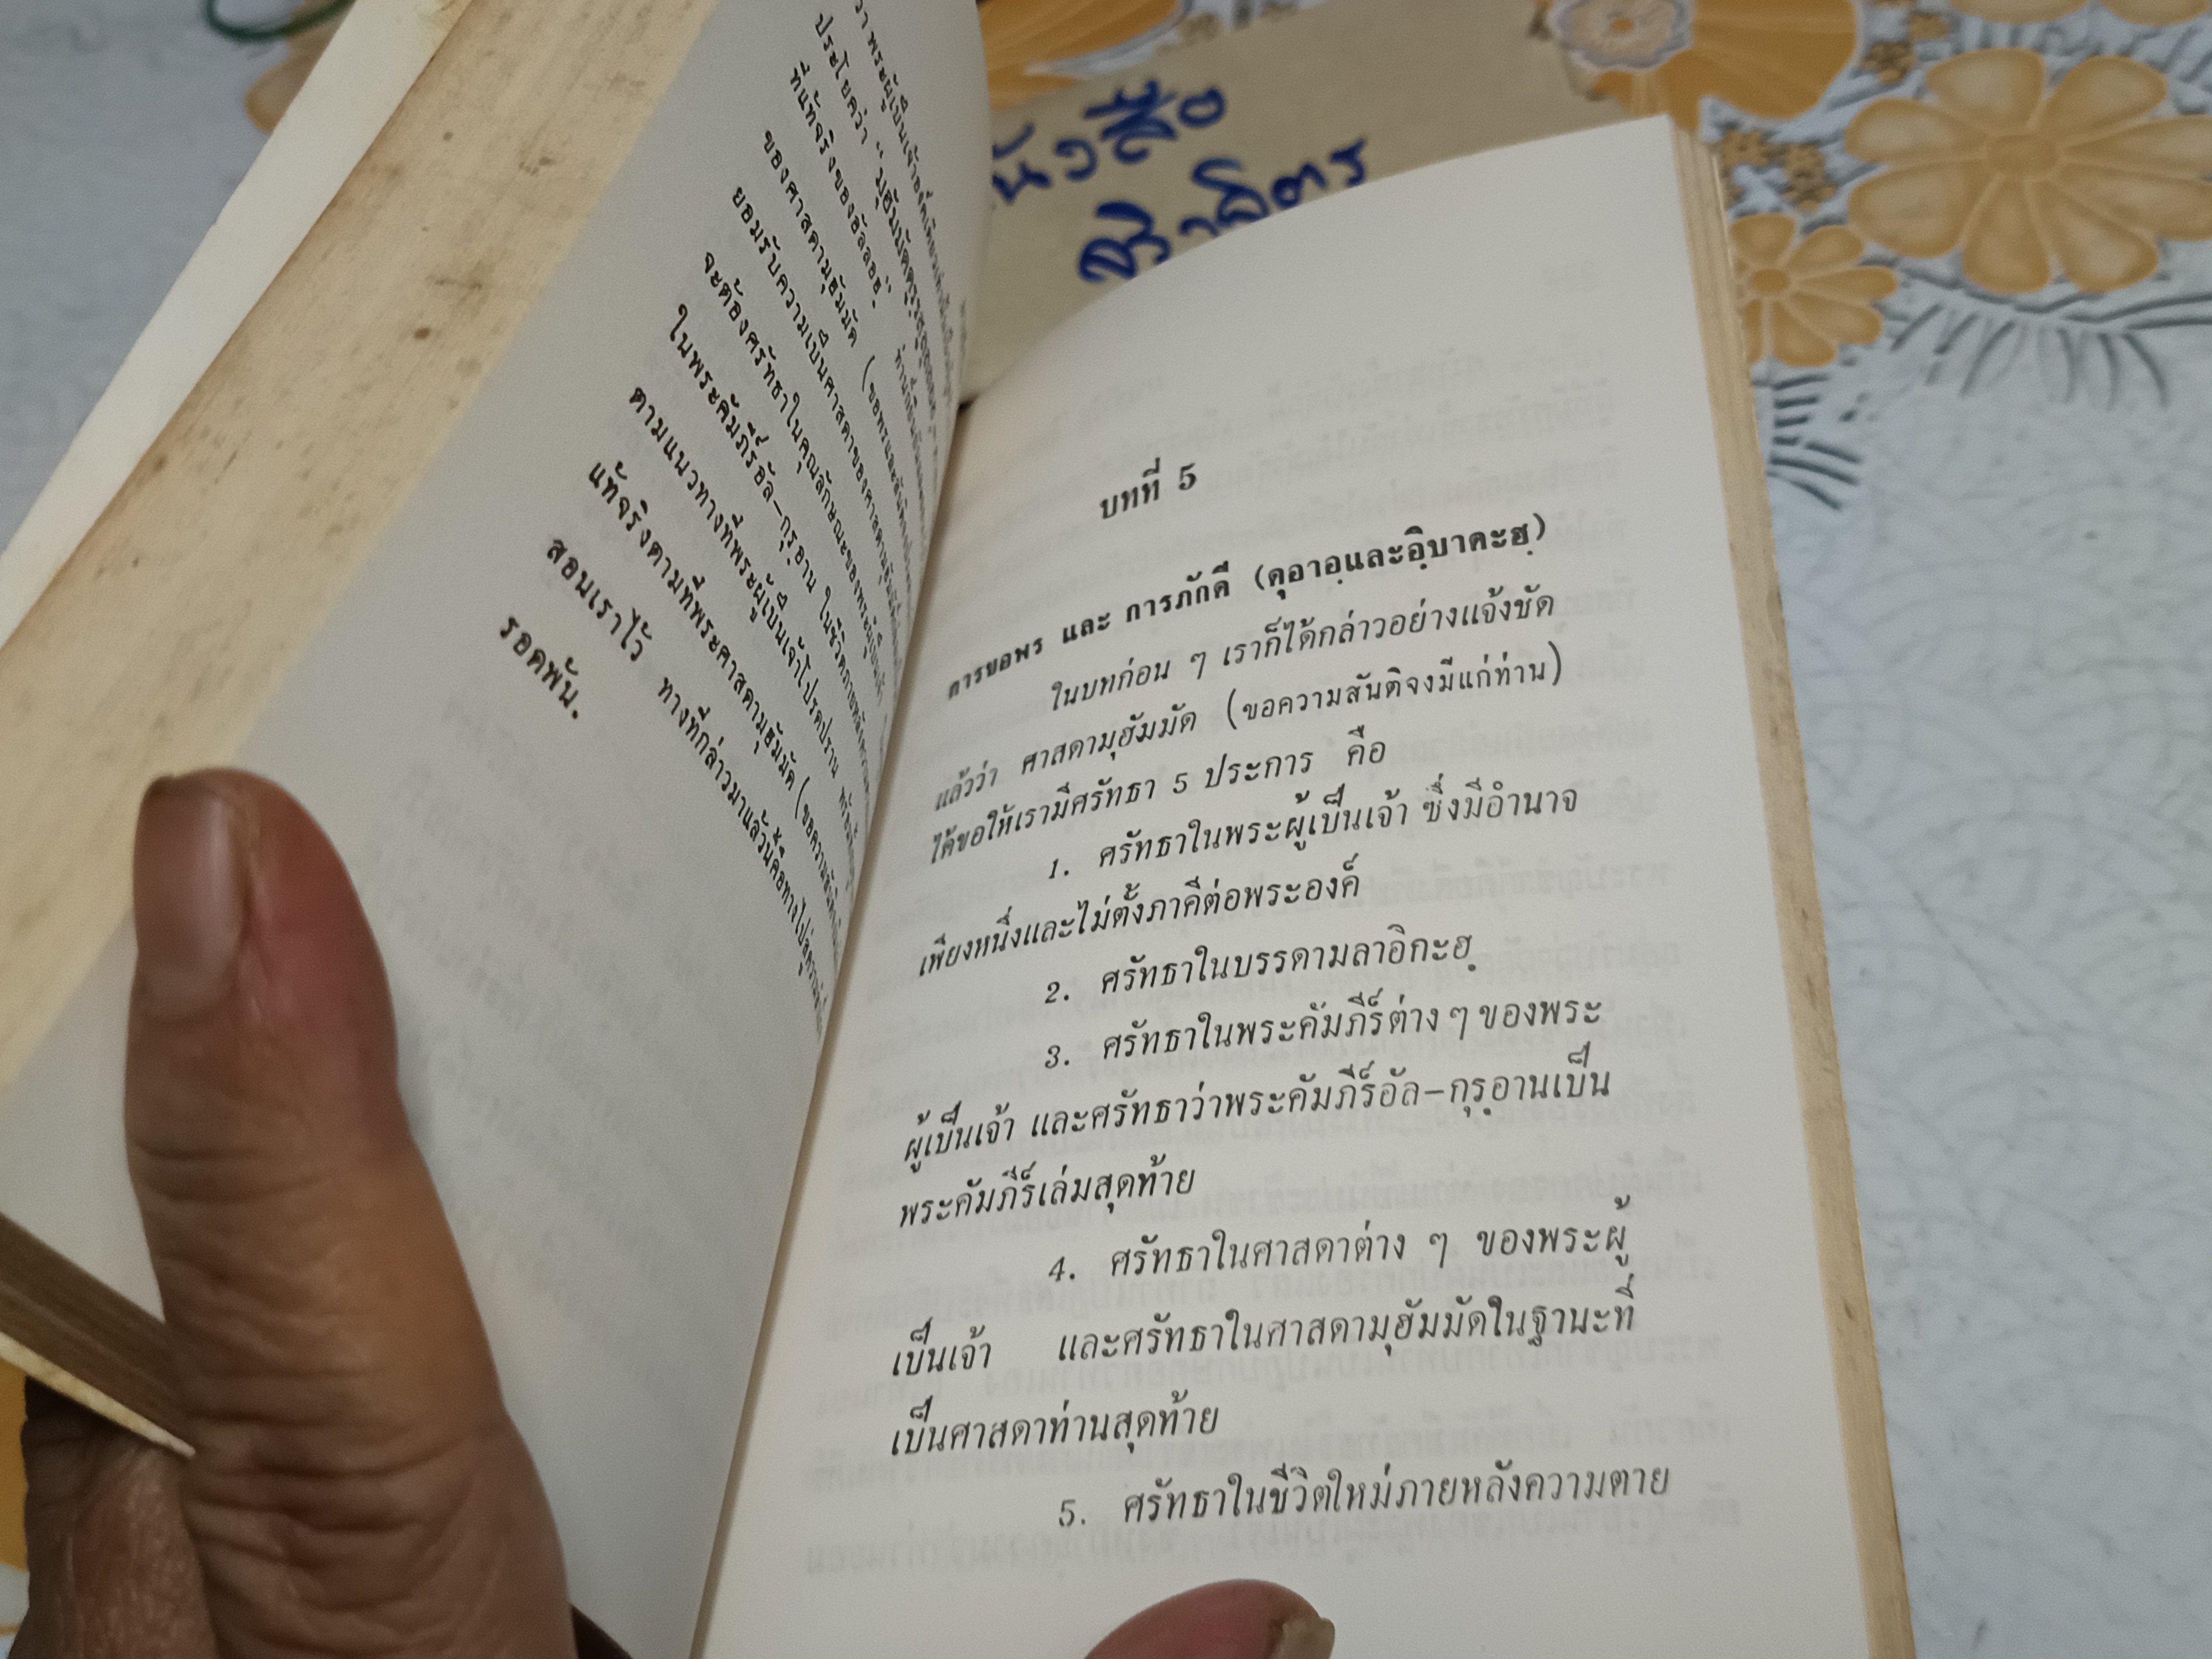 ว่า พระผู้เป็นเจ้า
ประโยคว่า "มุฮัมมัด
ที่แท้จริงของอัลลอฮฺ"
ของศาสดามุฮัมมัด (ขอพระ
ยอมรับความเป็นศาสดาของศาสดามุฮัมมัด
จะต้องศรัทธาในคุณลักษณะของพระผู้เป็นเจ้า
ในพระคัมภีร์อัล-กุรฺอาน ในชีวิตภายหลัง
ตามแนวทางที่พระผู้เป็นเจ้าโปรดปราน
แท้จริงตามที่พระศาสดามุฮัมมัด (ขอความสันติ
สอนเราไว้ ทางที่กล่าวมาแล้วนี้คือทางไปสู่ความ
รอดพ้น.
หนังสือ
บทที่ 5
การขอพร และ การภักดี (ดุอาอฺและอิบาดะฮฺ)
ในบทก่อน ๆ เราก็ได้กล่าวอย่างแจ้งชัด
แล้วว่า ศาสดามุฮัมมัด (ขอความสันติจงมีแก่ท่าน)
ได้ขอให้เรามีศรัทธา 5 ประการ คือ
1. ศรัทธาในพระผู้เป็นเจ้า ซึ่งมีอำนาจ
เพียงหนึ่งและไม่ตั้งภาคีต่อพระองค์
2. ศรัทธาในบรรดามลาอิกะฮฺ
3. ศรัทธาในพระคัมภีร์ต่าง ๆ ของพระ
ผู้เป็นเจ้า และศรัทธาว่าพระคัมภีร์อัล-กุรฺอานเป็น
พระคัมภีร์เล่มสุดท้าย
4. ศรัทธาในศาสดาต่าง ๆ ของพระผู้
เป็นเจ้า และศรัทธาในศาสดามุฮัมมัดในฐานะที่
เป็นศาสดาท่านสุดท้าย
5. ศรัทธาในชีวิตใหม่ภายหลังความตาย